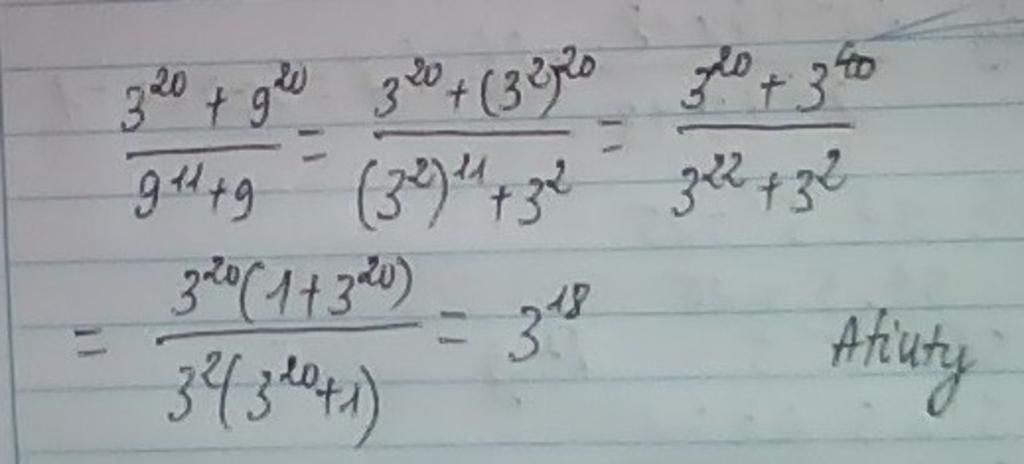 \frac{3^{20} + 9^{20}}{9^{11} + 9} = \frac{3^{20} + (3^2)^{20}}{(3^2)^{11} + 3^2} = \frac{3^{20} + 3^{40}}{3^{22} + 3^2}
= \frac{3^{20}(1 + 3^{20})}{3^2(3^{20} + 1)} = 3^{18}